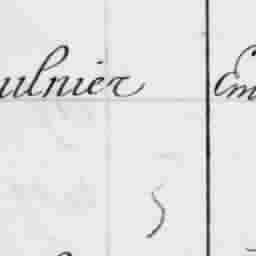 ulnier Em